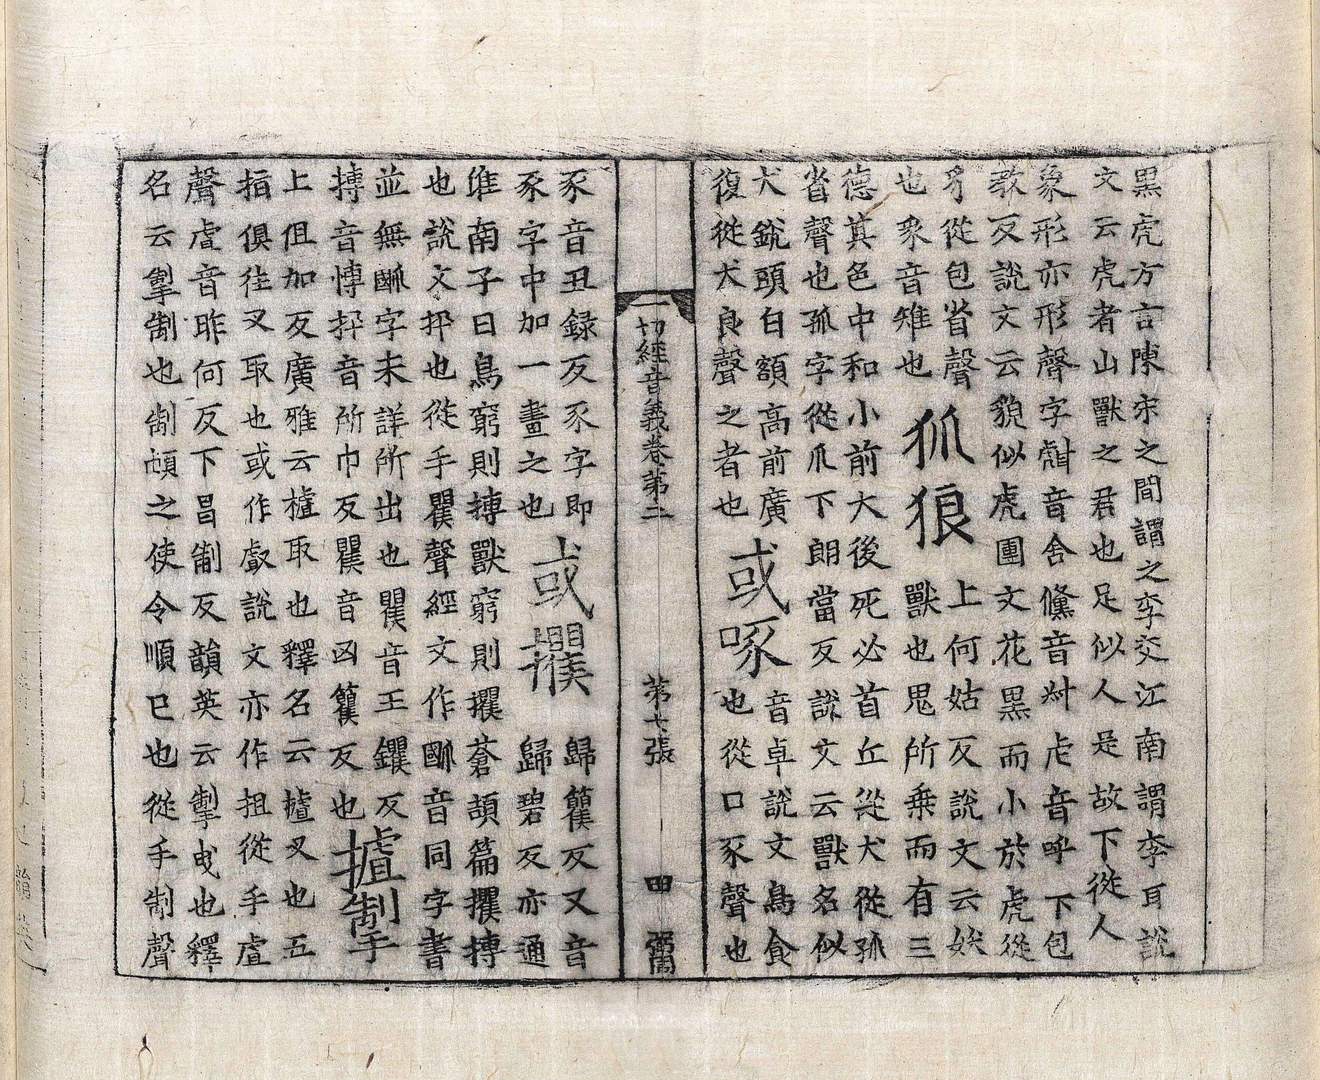 黑虎方言陳宋之間謂之李父江南謂李耳說
文云虎者山獸之君也足似人足故下從人
象形亦形聲字虪音舍儵音叔虍音呼下包
教反說文云貌似虎圎文花黑而小於虎從
豸從包省聲
狐狼
上何姑反說文云妖
也豸音雉也
獸也鬼所乗而有三
德其色中和小前大後死必首丘從犬從孤
省聲也孤字從爪下朗當反說文云獸名似
犬銳頭白額高前廣
復從犬良聲之者也
或啄
音卓說文鳥食
也從口豖聲也
一切經音義卷第二
第七張
田
弼
豖音丑録反豖字即
豕字中加一畫之也
或攫
歸籰反又音
歸碧反亦通
淮南子曰鳥窮則搏獸窮則攫蒼頡篇攫搏
也說文丮也從手矍聲經文作𠜾音同字書
並無𠜾字未詳所出也矍音王钁反
搏音愽丮音所巾反矍音㐫籰反也
摣掣
上俎加反廣雅云摣取也釋名云摣叉也五
指俱往叉取也或作㪥說文亦作担從手虘
聲虘音昨何反下昌制反韻英云掣曵也釋
名云掣制也制頓之使令順已也從手制聲